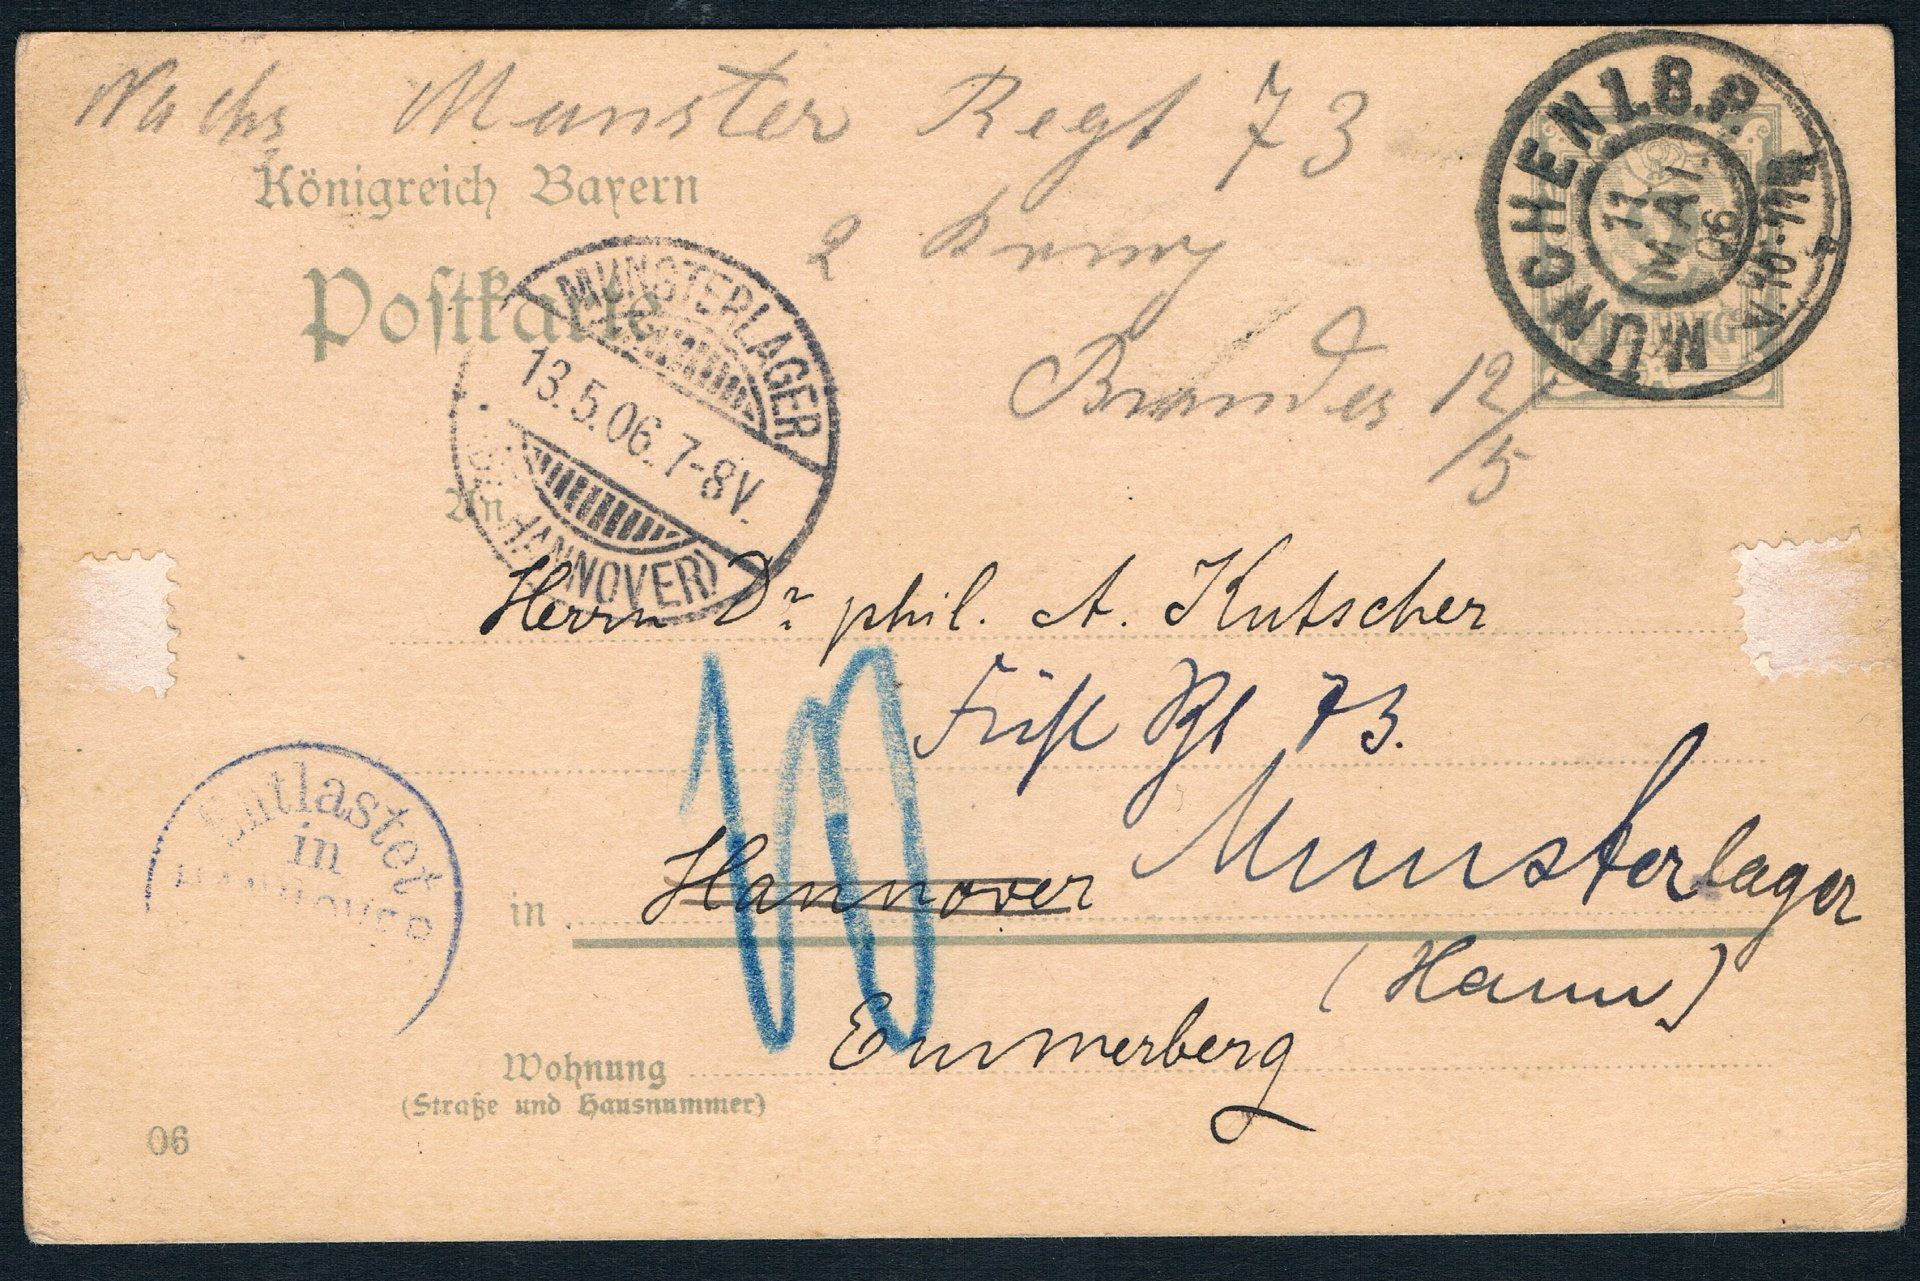 Nachs Munster Regt 73
Königreich Bayern
2
Brandes 12/5
Postkarte
MÜNCHEN 1.B.P.
11. MAI. 06.
V.10-11
PFENNIG
MUNSTERLAGER
13.5.06.7-8V.
HANNOVER)
An
Herrn Dr phil. A. Kutscher
Füsl Rgt 73.
Entlastet
in
HANNOVER
in Hannover Munsterlager
(Hann)
Emmerberg
Wohnung
(Straße und Hausnummer)
06
10